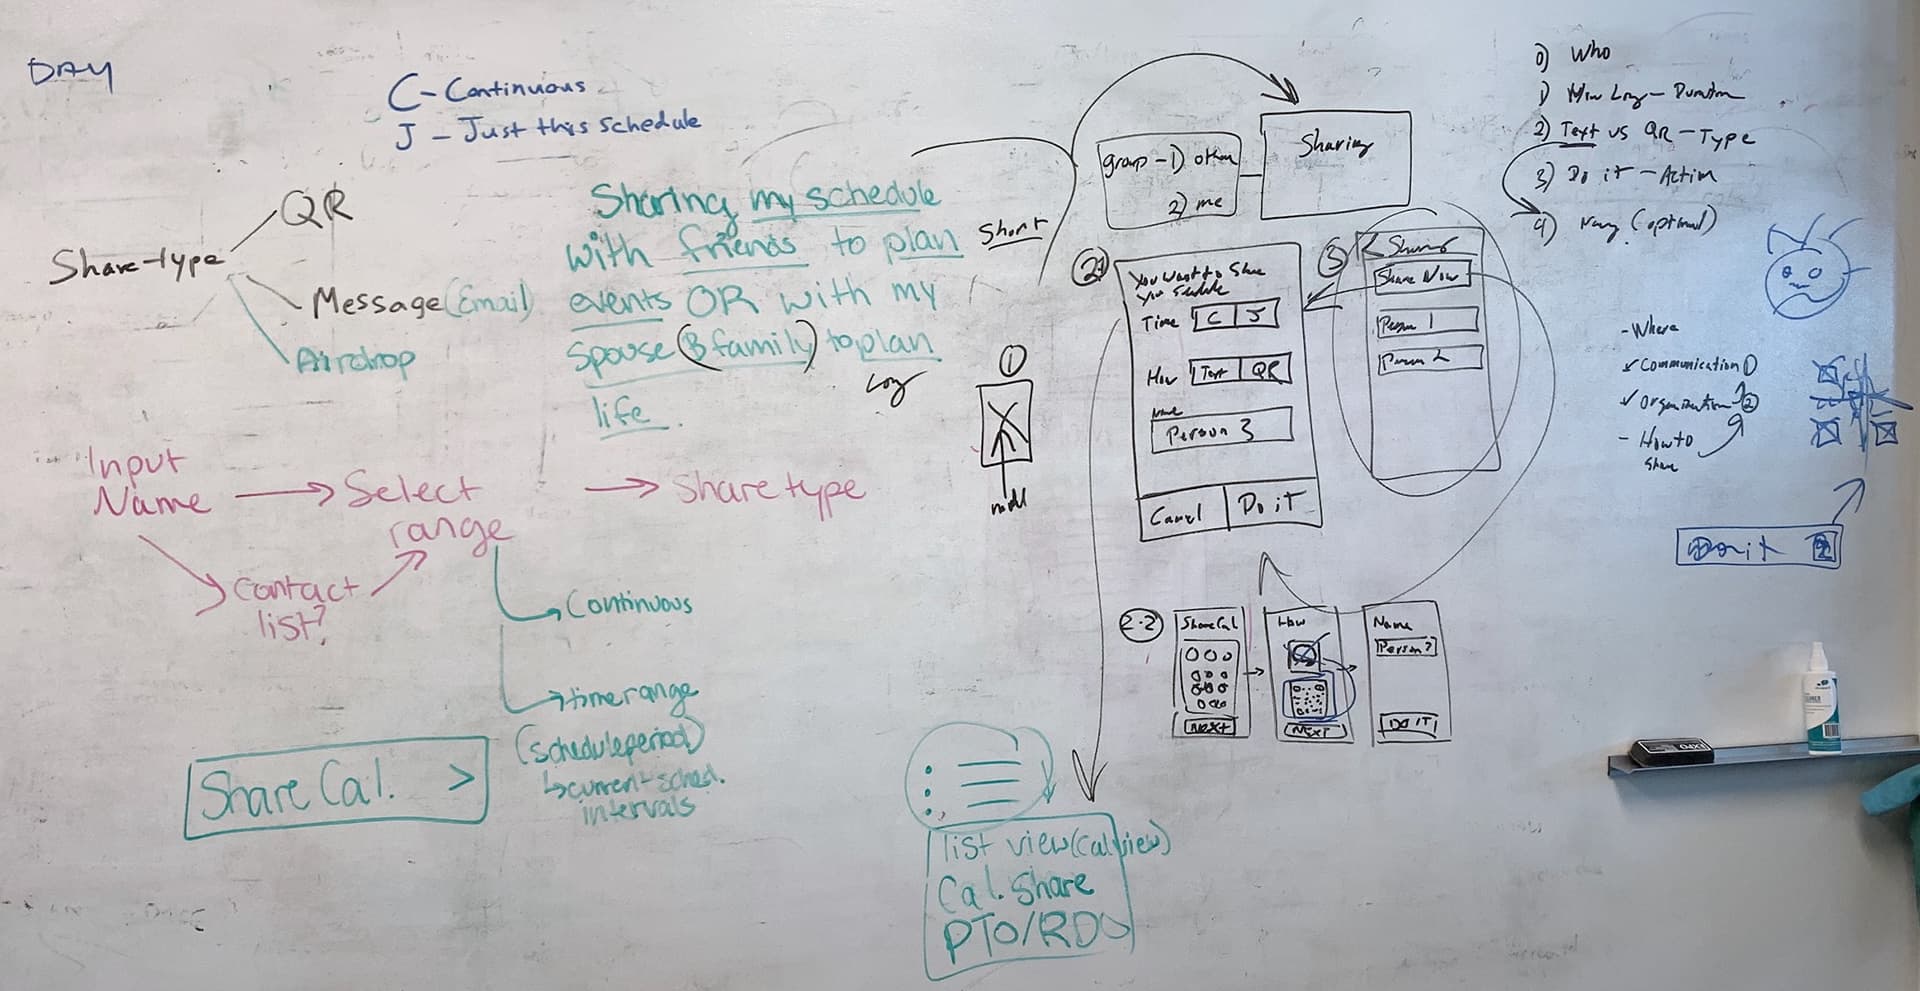 DAY
C - Continuous
J - Just this schedule
Share-type
QR
Message (Email)
Airdrop
Sharing my schedule
with friends to plan
events OR with my
spouse (& family) to plan
life.
Long
Short
Input
Name
Select
range
Share type
Contact
list?
Continuous
timerange
(schedule period)
current sched.
intervals
Share Cal. >
group - 1) other
2) me
Sharing
1
2.1
You Want to Share
Your Schedule
Time C J
How Text QR
Name
Person 3
Cancel Do it
3
Share Now
Person 1
Person 2
2.2
Share Cal
NEXT
How
NEXT
Name
Person ?
DO IT
list view (Cal view)
Cal. Share
PTO/RDO
0) Who
1) How Long - Duration
2) Text vs QR - Type
3) Do it - Action
4) (optional)
- Where
✓ Communication 1
✓ Organization 2
- How to
share
Do it
EXPO